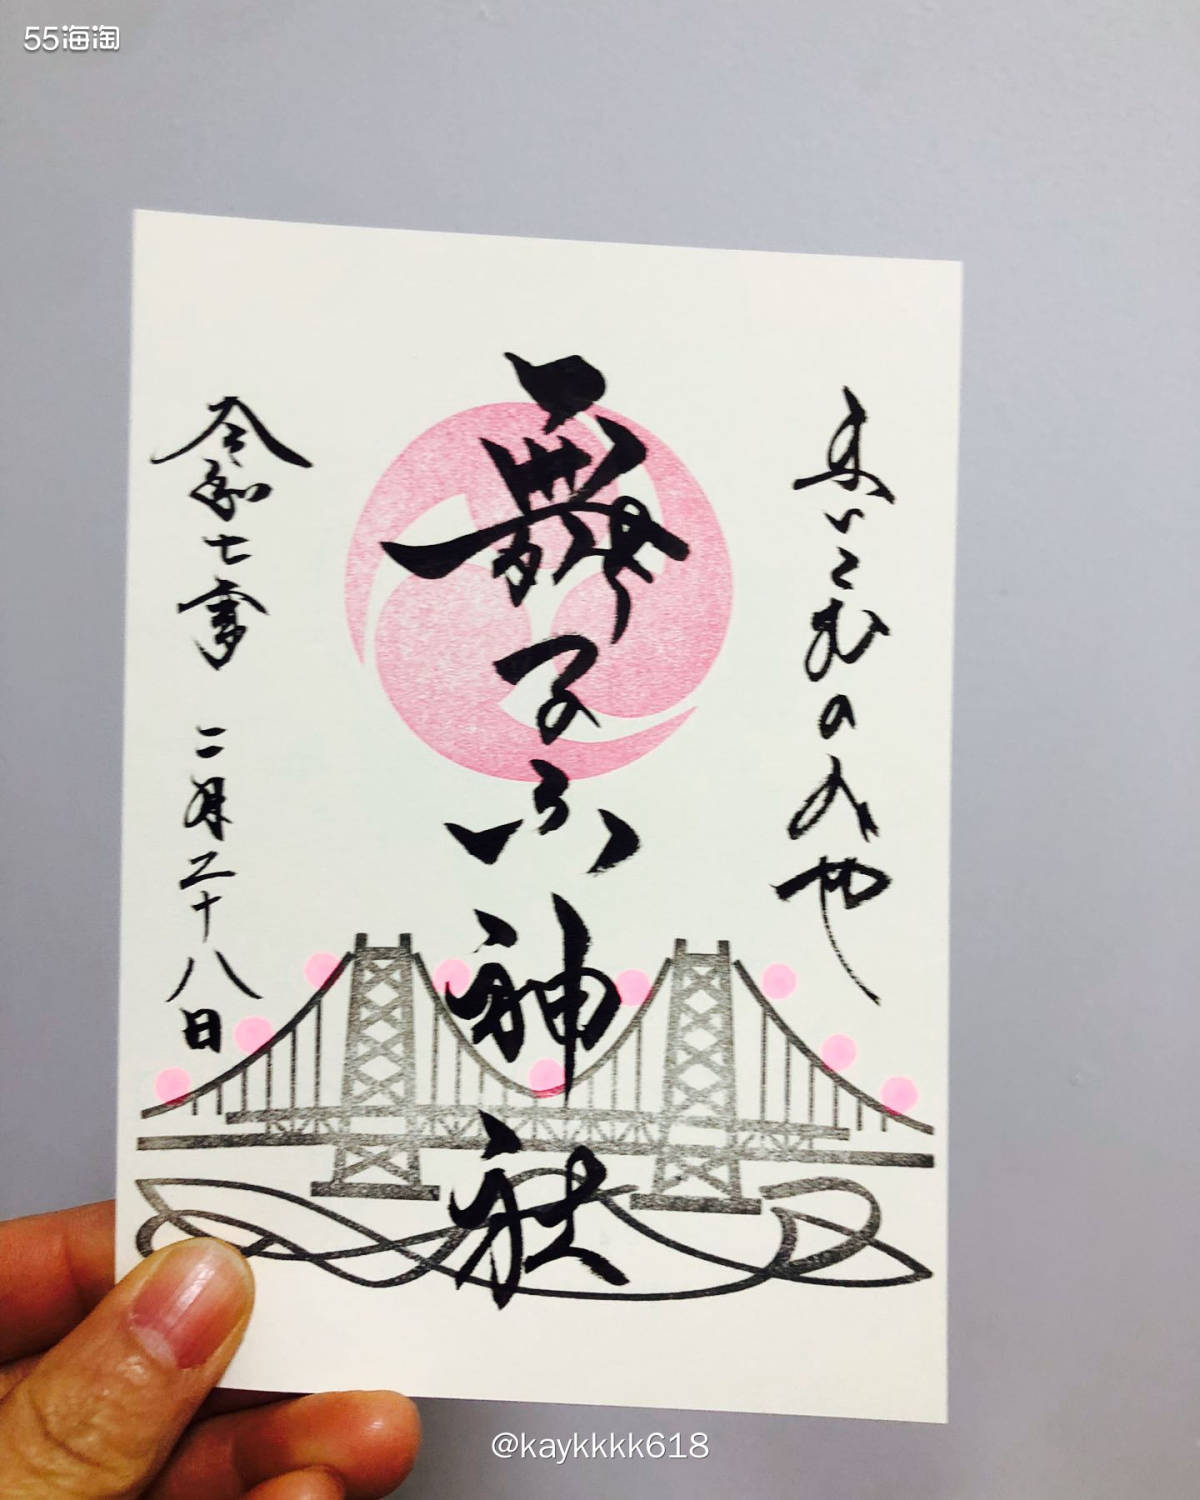 55海淘
まいこむのみや
舞子六神社
令和七年 二月二十八日
@kaykkkk618